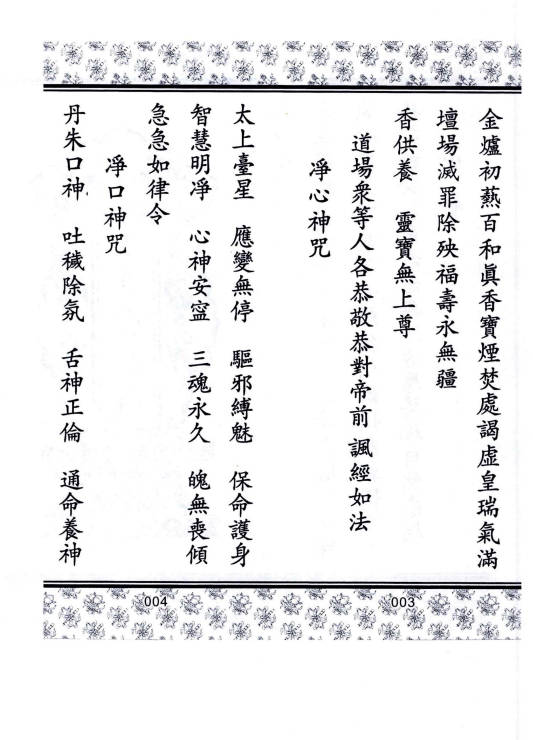 金爐初爇百和眞香寶煙焚處謁虛皇瑞氣滿
壇場滅罪除殃福壽永無疆
香供養　靈寶無上尊
道場衆等人各恭敬恭對帝前　諷經如法
淨心神咒
003
太上臺星　應變無停　驅邪縛魅　保命護身
智慧明淨　心神安寍　三魂永久　魄無喪傾
急急如律令
淨口神咒
丹朱口神　吐穢除氛　舌神正倫　通命養神
004